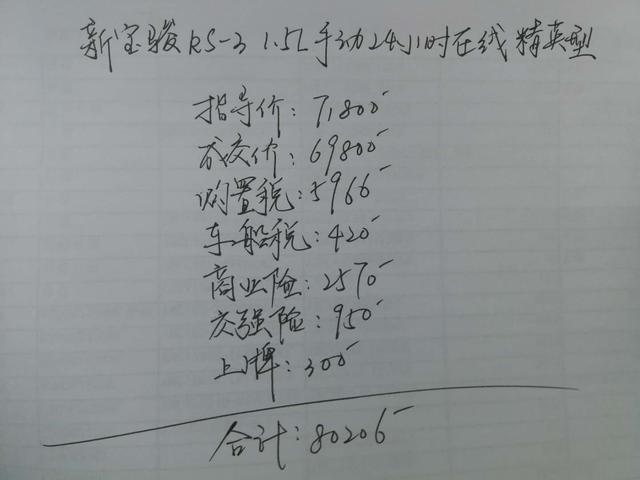 新宝骏RS-3 1.5L手动24小时在线精英型
指导价:71800
成交价:69800
购置税:5966
车船税:420
商业险:2570
交强险:950
上牌:300
合计:80206